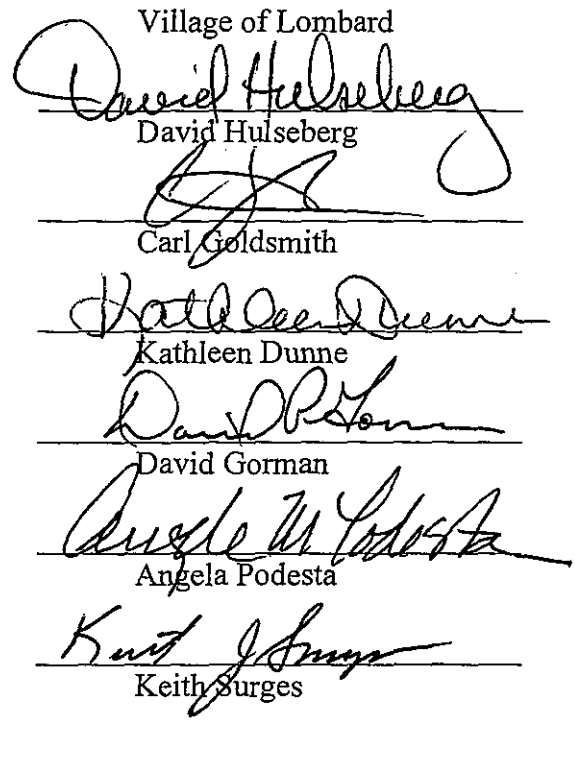 Village of Lombard
David Hulseberg
David Hulseberg
Carl Goldsmith
Kathleen Dunne
Kathleen Dunne
David P Gorman
David Gorman
Angela M Podesta
Angela Podesta
Keith Surges